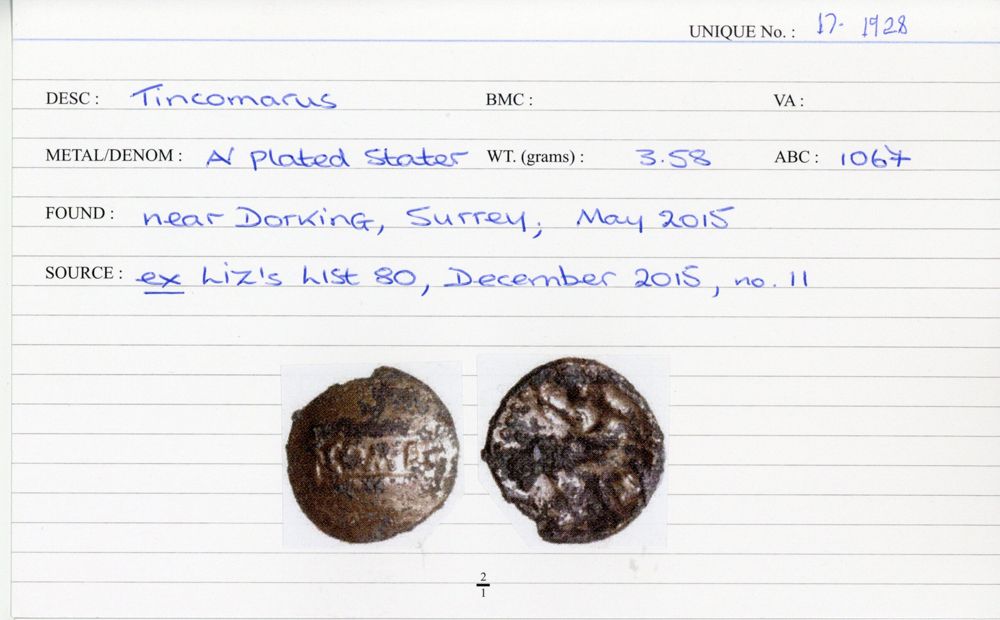 UNIQUE No. : 17- 1928
DESC : Tincomarus BMC : VA :
METAL/DENOM : AV plated Stater WT. (grams) : 3.58 ABC : 1067
FOUND : near Dorking, Surrey; May 2015
SOURCE : ex Liz's List 80, December 2015, no. 11
2
1